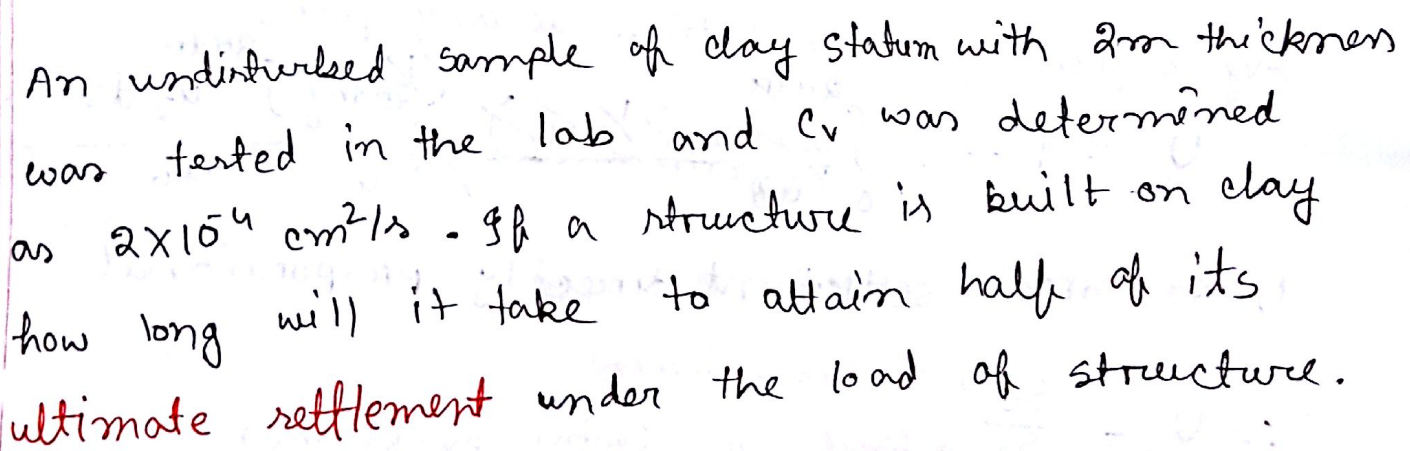 An undisturbed sample of clay statum with 2m thickness
was tested in the lab and Cv was determined
as 2×10⁻⁴ cm²/s. If a structure is built on clay
how long will it take to attain half of its
ultimate settlement under the load of structure.